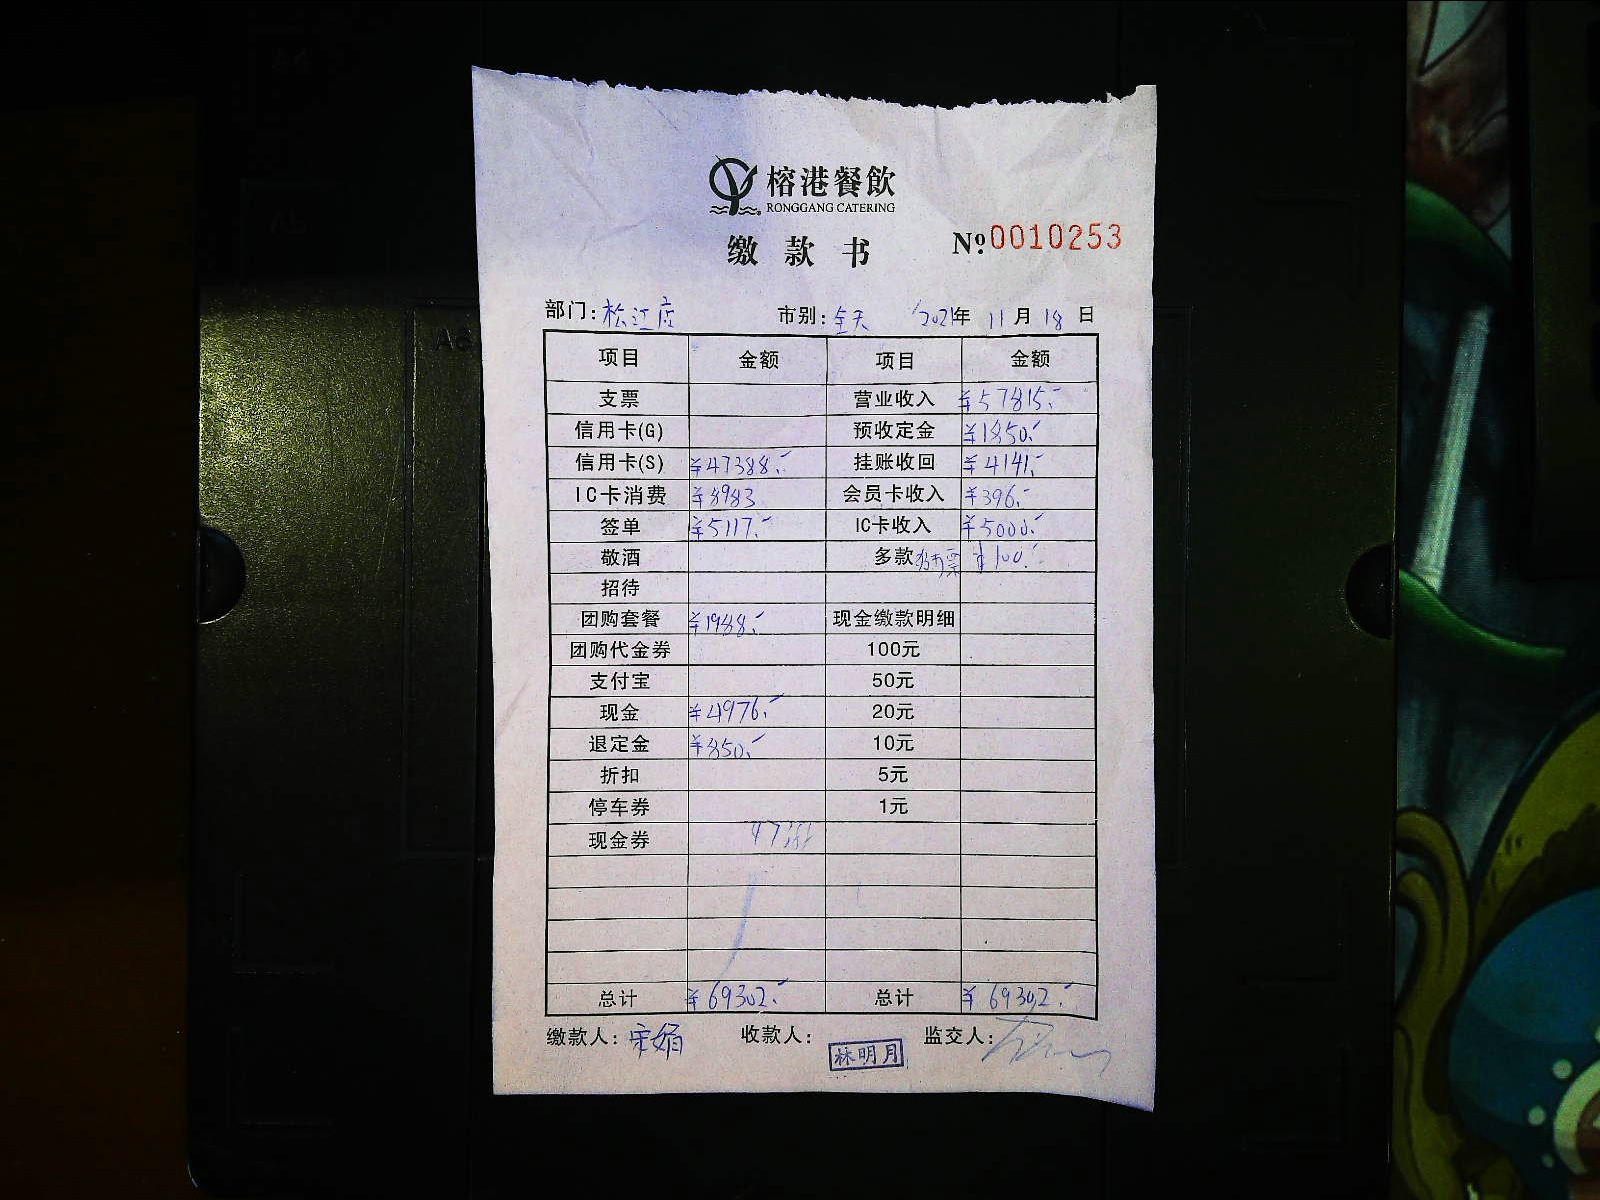 榕港餐飲
RONGGANG CATERING
缴款书 №0010253
部门：松江店 市别：全天 2021年 11月 18日
项目 金额 项目 金额
支票 营业收入 ¥57815.-
信用卡(G) 预收定金 ¥1850.-
信用卡(S) ¥47388.- 挂账收回 ¥4141.-
IC卡消费 ¥8983 会员卡收入 ¥396.-
签单 ¥5117.- IC卡收入 ¥5000.-
敬酒 多款 ¥100.-
招待
团购套餐 ¥1988.- 现金缴款明细
团购代金券 100元
支付宝 50元
现金 ¥4976.- 20元
退定金 ¥850.- 10元
折扣 5元
停车券 1元
现金券
总计 ¥69302.- 总计 ¥69302.-
缴款人：宋娟 收款人：林明月 监交人：
A6